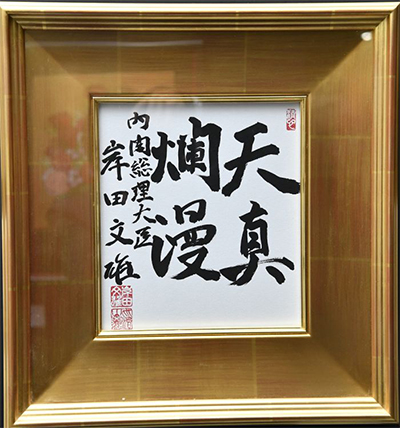 天真
爛漫
内閣総理大臣
岸田文雄